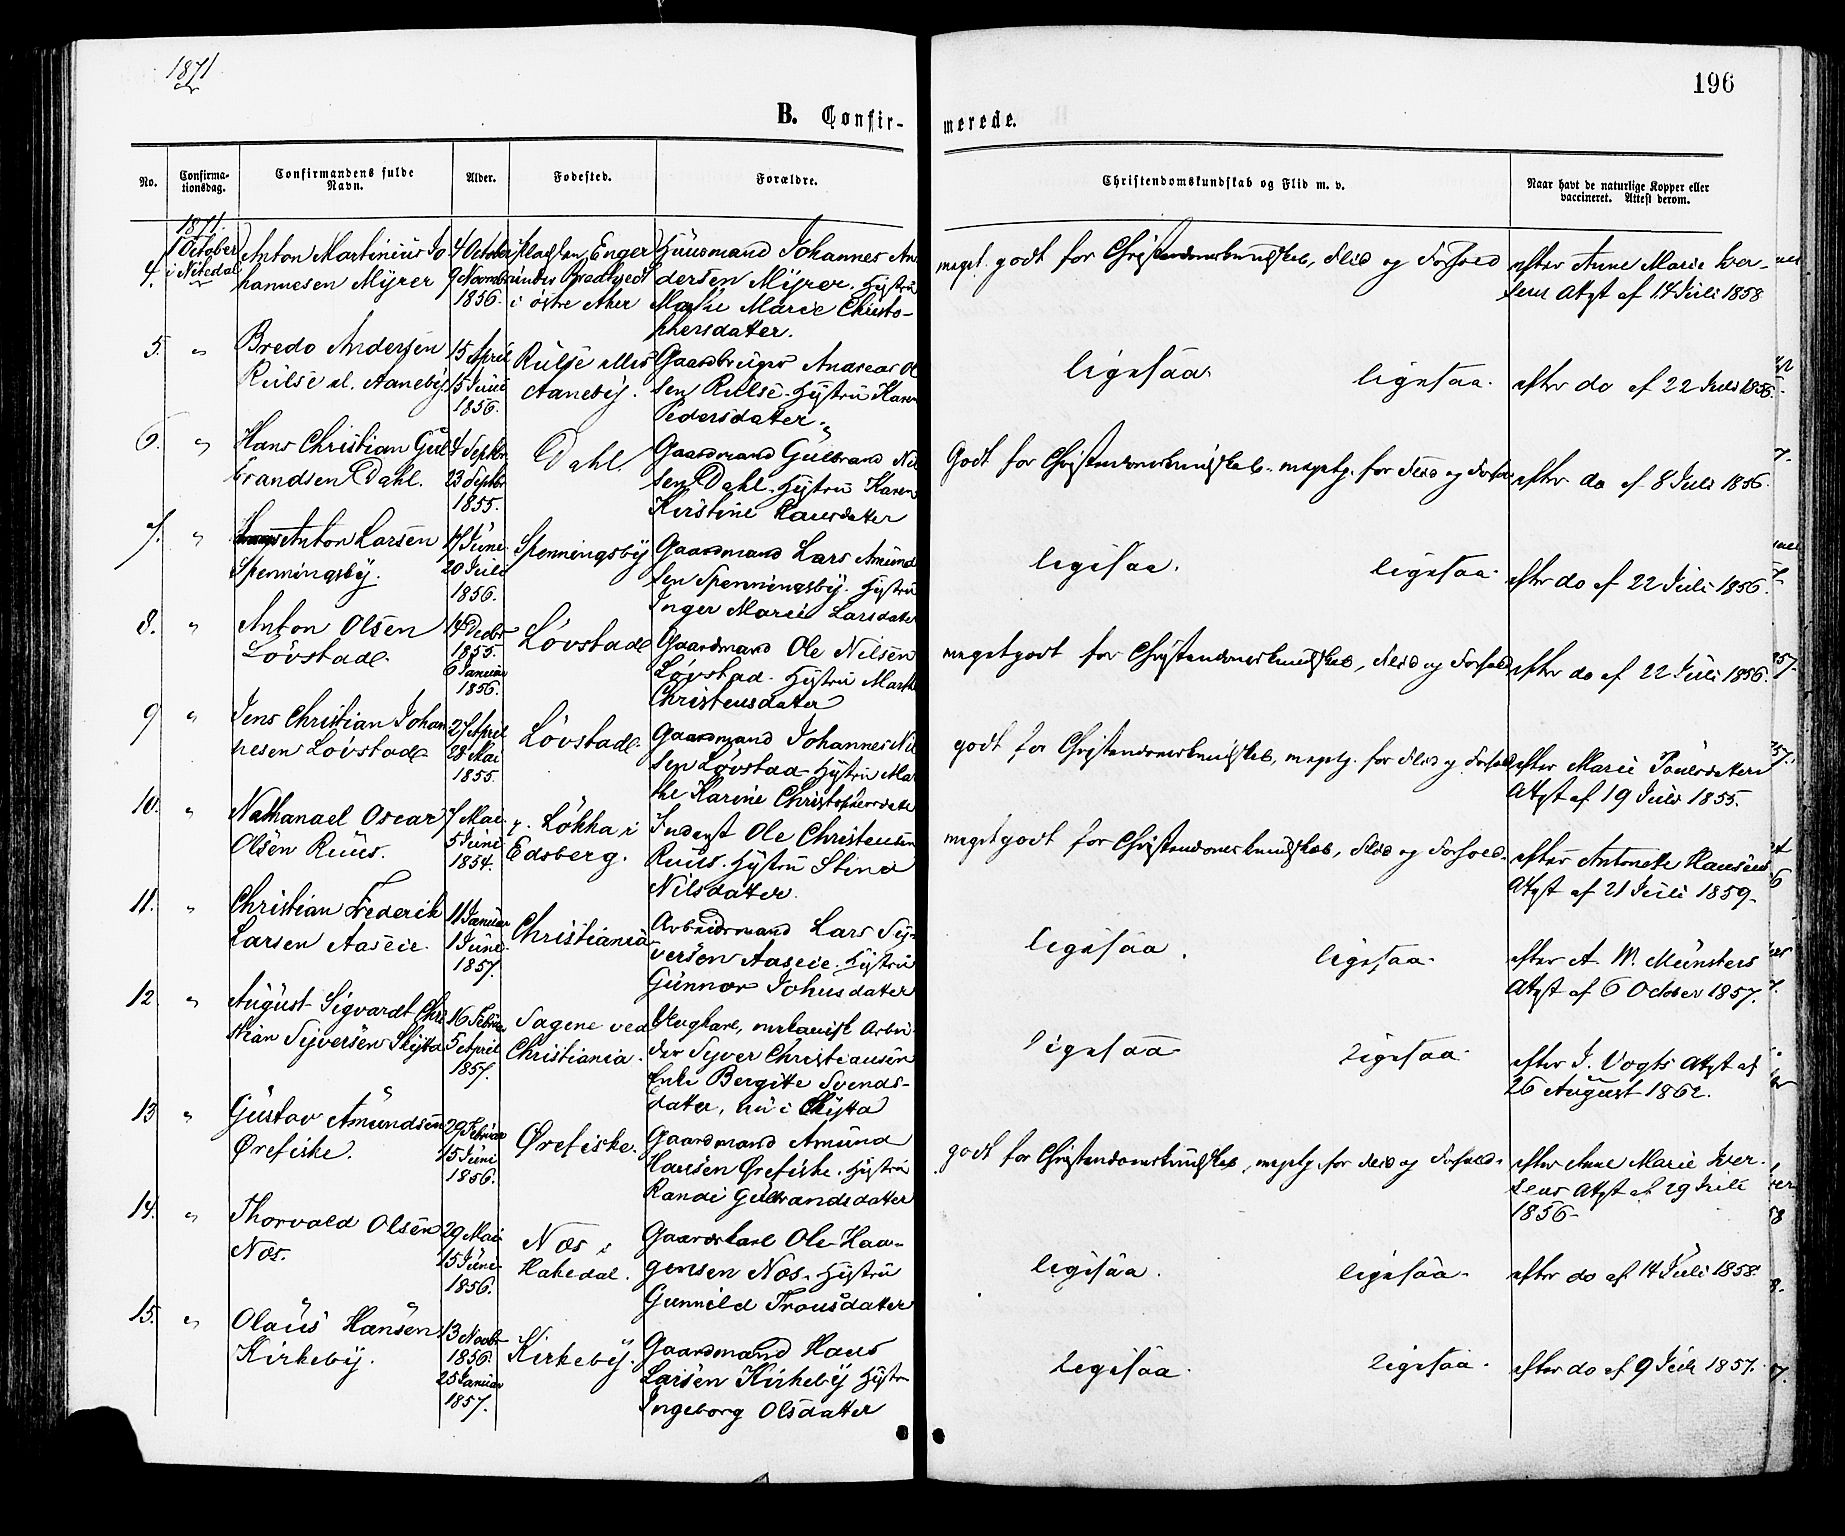 1871
196
B. Confir-
merede.
No.
Confirma-
tionsdag.
Confirmandens fulde
Navn.
Alder.
Fødested.
Forældre.
Christendomskundskab og Flid m. v.
Naar havt de naturlige Kopper eller
vaccineret. Attest derom.
1871.
1 October
i Nitedal
4.
Anton Martinius Jo
hannesen Myrer
4 October
9 Novembr
1856.
Pladsen Enger
under Bradtvedt
i østre Aker
Huusmand Johannes An
dersen Myrer. Hustru
Mathe Marie Christo-
phersdatter.
meget godt for Christendomskundskab, Flid og Forhold
efter Anne Marie Iver-
sens Attst af 14 Juli 1858
5. "
Bredo Andersen
Rulse el. Aaneby
15 April
15 Juni
1856.
Rulse eller
Aaneby.
Gaardbruger Andreas Ol
sen Rulse. Hustru Karen
Pedersdatter.
ligesaa. ligesaa.
efter do af 22 Juli 1856.
6. "
Hans Christian Gul
brandsen Dahl.
4 Septbr
23 Septbr
1855.
Dahl.
Gaardmand Gulbrand Nil
sen Dahl. Hustru Karen
Kirstine Hansdatter
Godt for Christendomskundskab. megetg. for Flid og Forhold
efter do af 8 Juli 1856.
7. "
Anton Larsen
Spenningsby.
17 Juni
20 Juli
1856.
Spenningsby
Gaardmand Lars Amund
sen Spenningsby. Hustru
Inger Marie Larsdatter
ligesaa. ligesaa.
efter do af 22 Juli 1856.
8. "
Anton Olsen
Løvstad.
14 Decbr
1855.
6 Januar
1856.
Løvstad
Gaardmand Ole Nilsen
Løvstad. Hustru Marthe
Christensdatter
meget godt for Christendomskundskab, Flid og Forhold
efter do af 22 Juli 1856.
9 "
Jens Christian Johan
nesen Løvstad
27 April
28 Mai
1855.
Løvstad.
Gaardmand Johannes Nil
sen Løvstad Hustru Ma
the Karine Christophersdatter
godt for Christendomskundskab, megetg. for Flid og Forhold
efter Marie Poulsdatters
Attst af 19 Juli 1855.
10. "
Nathanael Oscar
Olsen Ruus.
7 Mai
5 Juni
1854.
p. Løkka i
Edsberg.
Inderst Ole Christensen
Ruus. Hustru Stina
Nilsdatter.
meget godt for Christendomskundskab, Flid og Forhold.
efter Antonette Hansens
Attst af 21 Juli 1859.
11. "
Christian Frederik
Larsen Aaseie.
11 Januar
1 Juni
1857.
Christiania
Arbeidsmand Lars Sy-
versen Aaseie. Hustru
Gunnor Johnsdatter
ligesaa. ligesaa.
efter A. W. Münsters
Attst af 6 October 1857.
12 "
August Sigvardt Chri
stian Syversen Skytta
16 Februar
5 April
1857.
Sagene ved
Christiania.
Ungkarl, mekanisk Arbei
der Syver Christiansen
Enke Bergitte Svends-
datter, nu i Skytta
ligesaa ligesaa.
efter J. Vogts Attst af
26 August 1862.
13 "
Gustav Amundsen
Ørefiske.
29 Februar
15 Juni
1856.
Ørefiske.
Gaardmand Amund
Hansen Ørefiske. Hustru
Randi Gulbrandsdatter
godt for Christendomskundskab, megetg. for Flid og Forhold.
efter Anne Marie Iver-
sens Attst af 29 Juli
1856.
14. "
Thorvald Olsen
Næs.
29 Mai
15 Juni
1856.
Næs i
Hakedal.
Gaardskarl Ole Haa-
gensen Næs. Hustru
Gunnild Tronsdatter
ligesaa. ligesaa.
efter do af 14 Juli 1858.
15. "
Olaus Hansen
Kirkeby.
13 Novbr
1856.
25 Januar
1857.
Kirkeby.
Gaardmand Hans
Larsen Kirkeby Hustru
Ingeborg Olsdatter
Ligesaa. Ligesaa.
efter do af 9 Juli 1857.